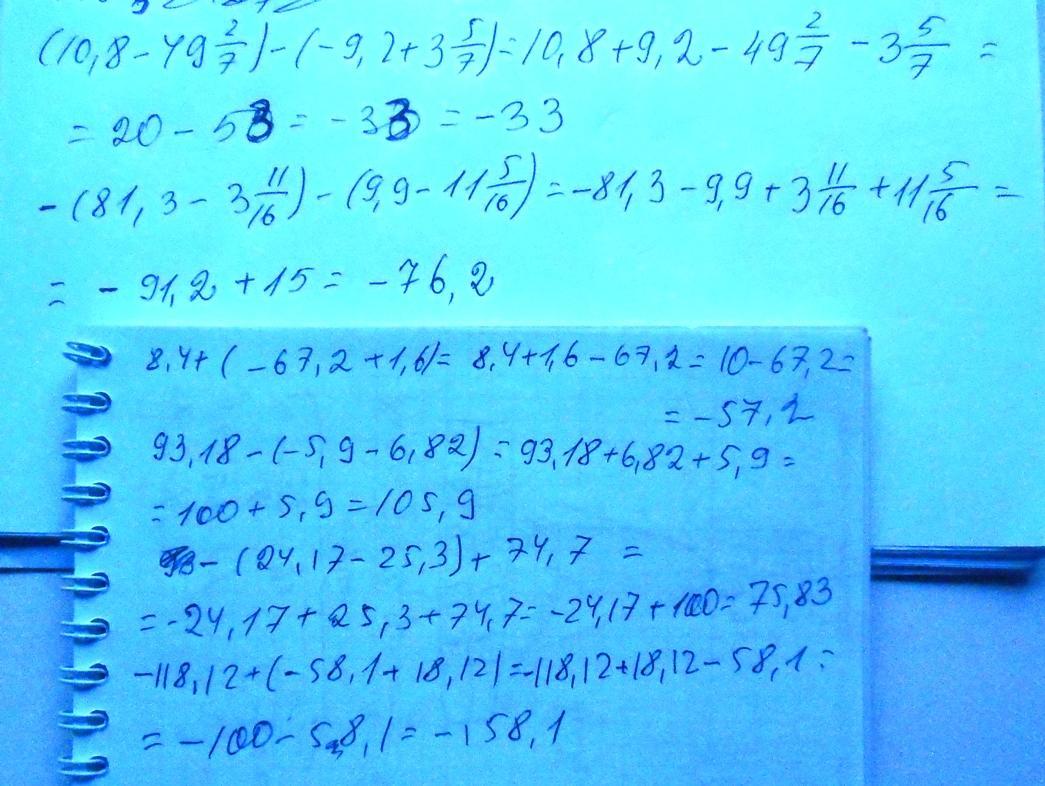 (10,8-49 2/7)-(-9,2+3 5/7)=10,8+9,2-49 2/7-3 5/7=
=20-53=-33=-33
-(81,3-3 11/16)-(9,9-11 5/16)=-81,3-9,9+3 11/16+11 5/16=
=-91,2+15=-76,2
8,4+(-67,2+1,6)=8,4+1,6-67,2=10-67,2=
=-57,2
93,18-(-5,9-6,82)=93,18+6,82+5,9=
=100+5,9=105,9
-(24,17-25,3)+74,7=
=-24,17+25,3+74,7=-24,17+100=75,83
-118,12+(-58,1+18,12)=-118,12+18,12-58,1=
=-100-58,1=-158,1